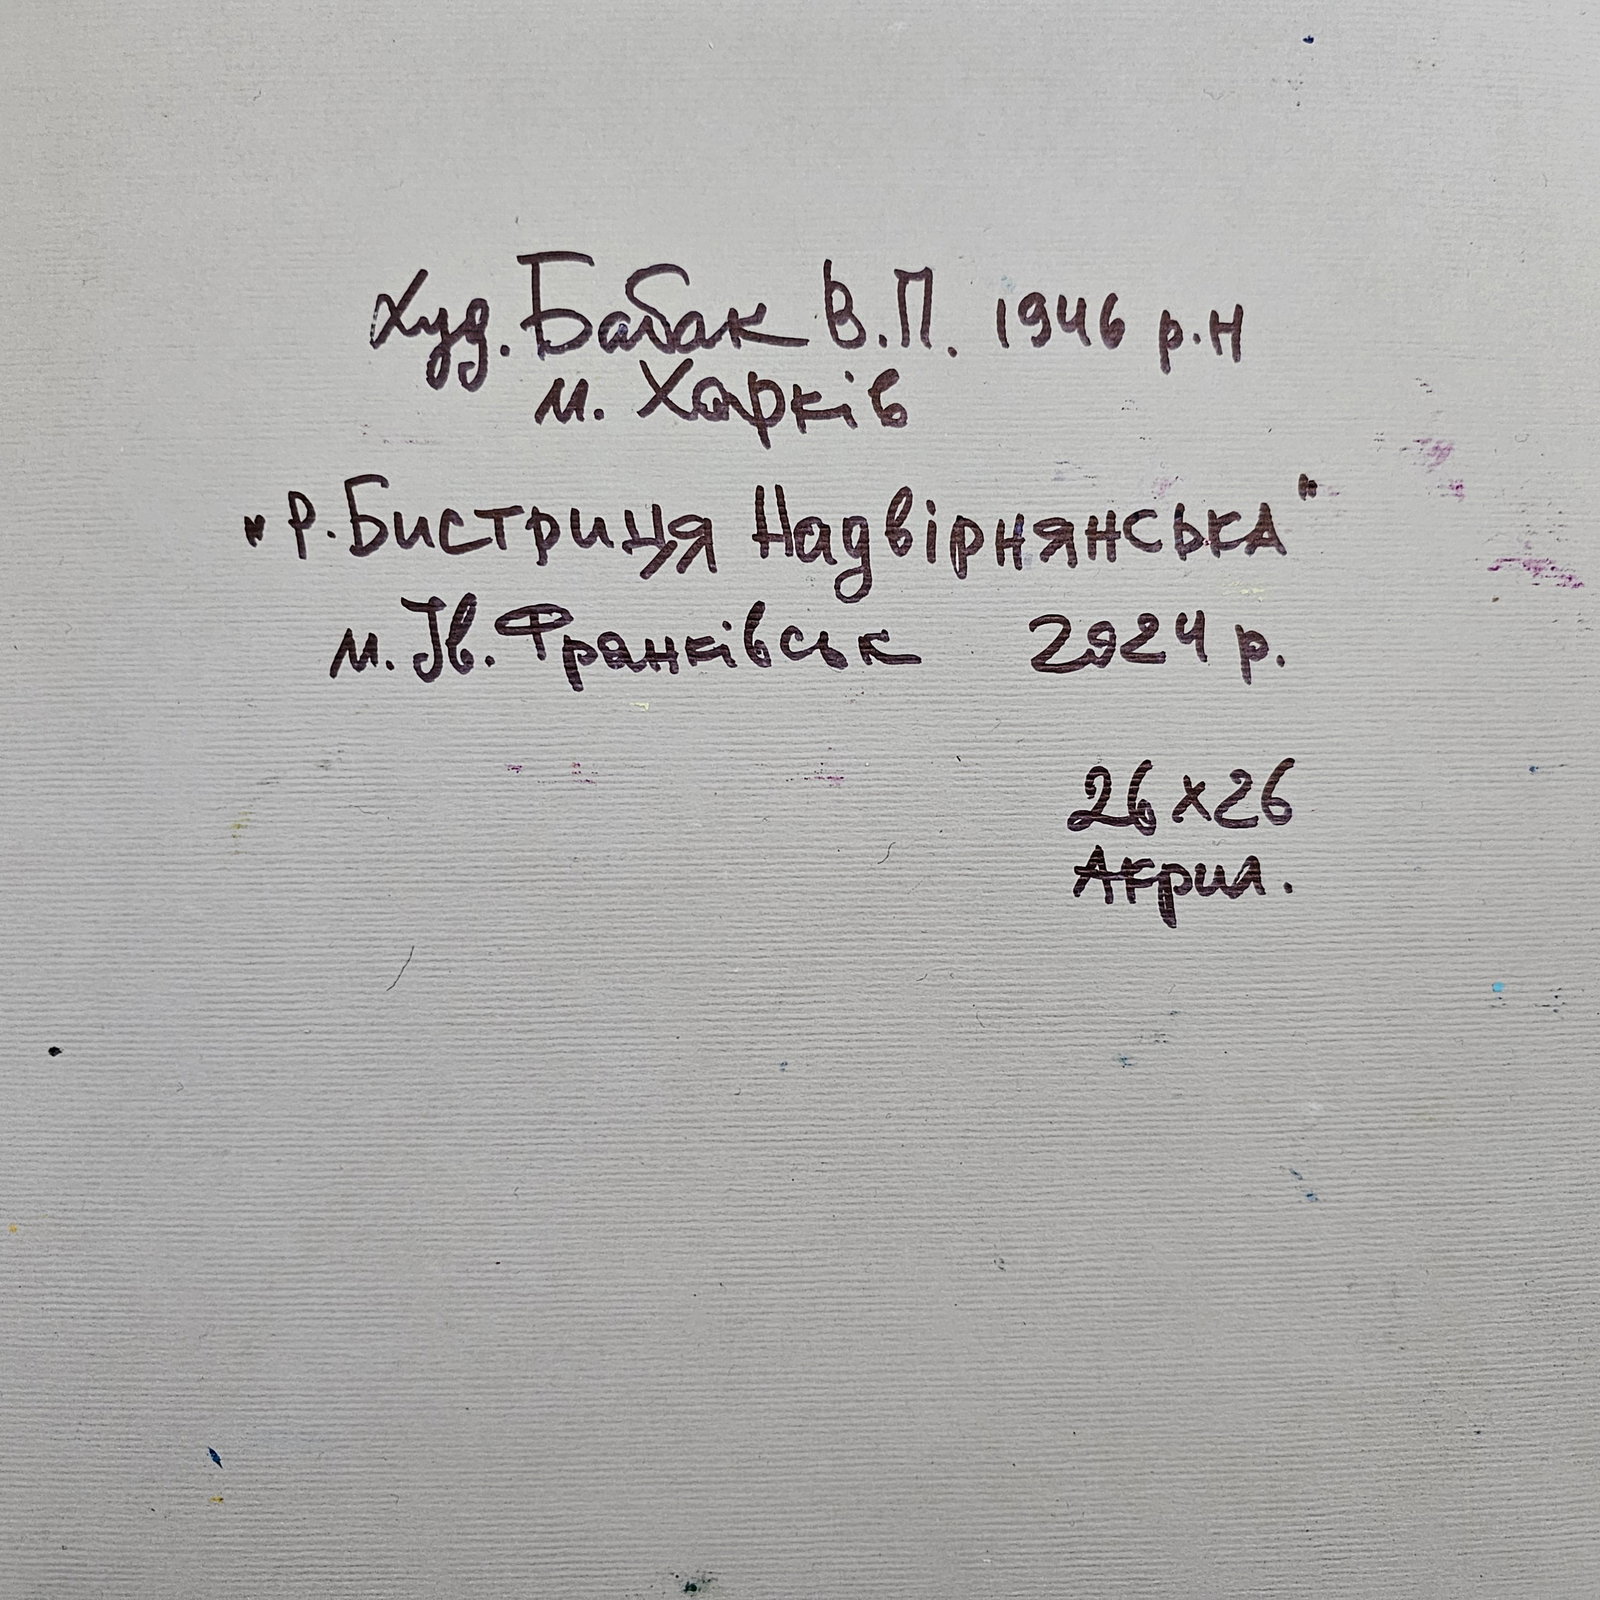 Худ. Бабак В.П. 1946 р.н
м. Харків
"р. Бистриця Надвірнянська"
м. Ів. Франківськ 2024 р.
26x26
Акрил.